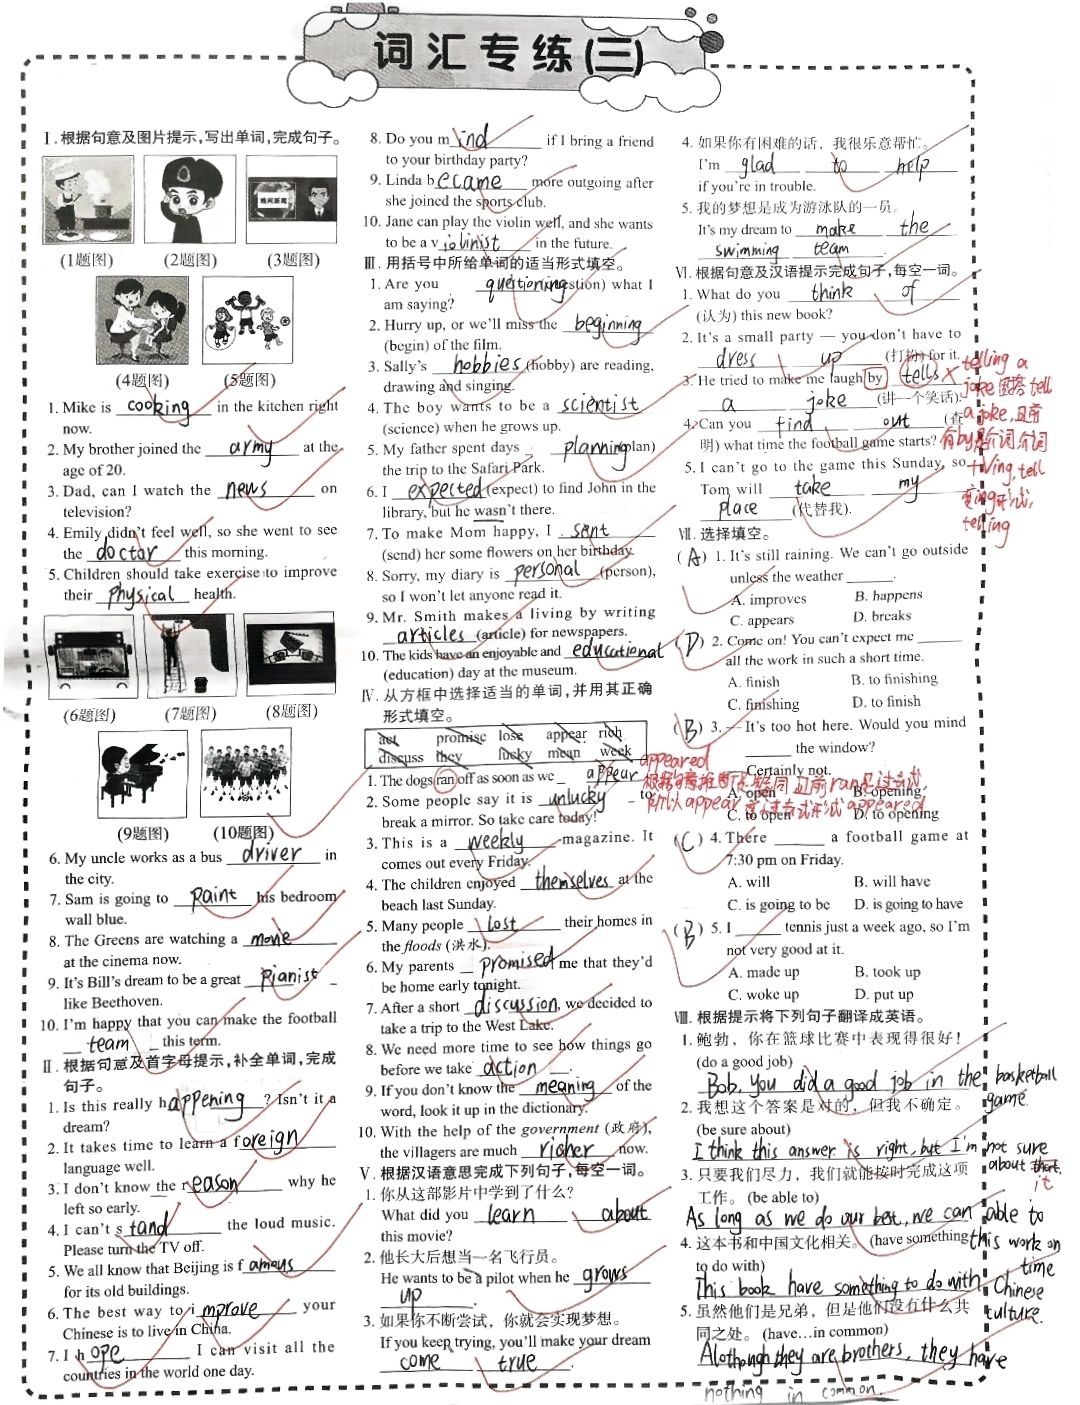 词汇专练(三)
Ⅰ.根据句意及图片提示,写出单词,完成句子。
晚间新闻
(1题图) (2题图) (3题图)
(4题图) (5题图)
1. Mike is cooking in the kitchen right
now.
2. My brother joined the army at the
age of 20.
3. Dad, can I watch the news on
television?
4. Emily didn't feel well, so she went to see
the doctor this morning.
5. Children should take exercise to improve
their physical health.
(6题图) (7题图) (8题图)
(9题图) (10题图)
6. My uncle works as a bus driver in
the city.
7. Sam is going to paint his bedroom
wall blue.
8. The Greens are watching a movie
at the cinema now.
9. It's Bill's dream to be a great pianist
like Beethoven.
10. I'm happy that you can make the football
team this term.
Ⅱ.根据句意及首字母提示,补全单词,完成
句子。
1. Is this really happening? Isn't it a
dream?
2. It takes time to learn a foreign
language well.
3. I don't know the reason why he
left so early.
4. I can't stand the loud music.
Please turn the TV off.
5. We all know that Beijing is famous
for its old buildings.
6. The best way to improve your
Chinese is to live in China.
7. I hope I can visit all the
countries in the world one day.
8. Do you mind if I bring a friend
to your birthday party?
9. Linda became more outgoing after
she joined the sports club.
10. Jane can play the violin well, and she wants
to be a violinist in the future.
Ⅲ.用括号中所给单词的适当形式填空。
1. Are you questioning (question) what I
am saying?
2. Hurry up, or we'll miss the beginning
(begin) of the film.
3. Sally's hobbies (hobby) are reading,
drawing and singing.
4. The boy wants to be a scientist
(science) when he grows up.
5. My father spent days planning (plan)
the trip to the Safari Park.
6. I expected (expect) to find John in the
library, but he wasn't there.
7. To make Mom happy, I sent
(send) her some flowers on her birthday.
8. Sorry, my diary is personal (person),
so I won't let anyone read it.
9. Mr. Smith makes a living by writing
articles (article) for newspapers.
10. The kids have an enjoyable and educational
(education) day at the museum.
Ⅳ.从方框中选择适当的单词,并用其正确
形式填空。
act promise lose appear rich
discuss they lucky mean week
appeared
1. The dogs ran off as soon as we appear
2. Some people say it is unlucky to
break a mirror. So take care today!
3. This is a weekly magazine. It
comes out every Friday.
4. The children enjoyed themselves at the
beach last Sunday.
5. Many people lost their homes in
the floods (洪水).
6. My parents promised me that they'd
be home early tonight.
7. After a short discussion, we decided to
take a trip to the West Lake.
8. We need more time to see how things go
before we take action.
9. If you don't know the meaning of the
word, look it up in the dictionary.
10. With the help of the government (政府),
the villagers are much richer now.
Ⅴ.根据汉语意思完成下列句子,每空一词。
1. 你从这部影片中学到了什么?
What did you learn about
this movie?
2. 他长大后想当一名飞行员。
He wants to be a pilot when he grows
up.
3. 如果你不断尝试,你就会实现梦想。
If you keep trying, you'll make your dream
come true.
4. 如果你有困难的话,我很乐意帮忙。
I'm glad to help
if you're in trouble.
5. 我的梦想是成为游泳队的一员。
It's my dream to make the
swimming team.
Ⅵ.根据句意及汉语提示完成句子,每空一词。
1. What do you think of
(认为) this new book?
2. It's a small party — you don't have to
dress up (打扮) for it.
3. He tried to make me laugh by tells
a joke (讲一个笑话).
telling a
a joke,且前
tell
变ing形式,
telling
4. Can you find out (查
明) what time the football game starts?
5. I can't go to the game this Sunday, so
Tom will take my
place (代替我).
Ⅶ.选择填空。
(A) 1. It's still raining. We can't go outside
unless the weather ____.
A. improves B. happens
C. appears D. breaks
(D) 2. Come on! You can't expect me ____
all the work in such a short time.
A. finish B. to finishing
C. finishing D. to finish
(B) 3. — It's too hot here. Would you mind
____ the window?
Certainly not.
A. open B. opening
C. to open D. to opening
所以appear变过去式形式appeared
(C) 4. There ____ a football game at
7:30 pm on Friday.
A. will B. will have
C. is going to be D. is going to have
(B) 5. I ____ tennis just a week ago, so I'm
not very good at it.
A. made up B. took up
C. woke up D. put up
Ⅷ.根据提示将下列句子翻译成英语。
1. 鲍勃,你在篮球比赛中表现得很好!
(do a good job)
Bob, you did a good job in the basketball
game.
2. 我想这个答案是对的,但我不确定。
(be sure about)
I think this answer is right, but I'm not sure
about that. it
3. 只要我们尽力,我们就能按时完成这项
工作。(be able to)
As long as we do our best, we can able to
this work on
time
4. 这本书和中国文化相关。(have something
to do with)
This book have something to do with Chinese
culture.
5. 虽然他们是兄弟,但是他们没有什么共
同之处。(have…in common)
Alothough they are brothers, they have
nothing in common.